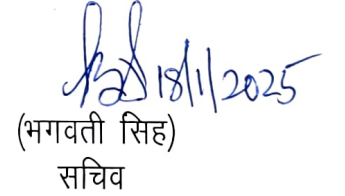 18/1/2025
(भगवती सिंह)
सचिव